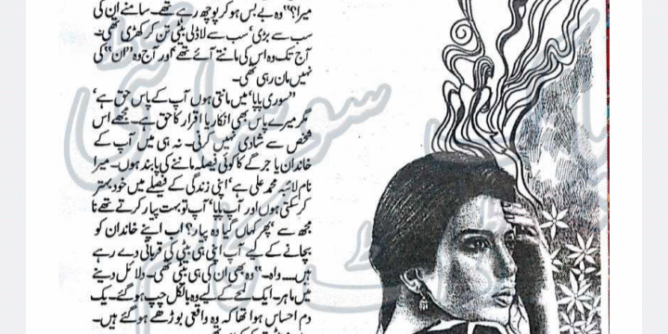 میرا؟" وہ بے بس ہو کر پوچھ رہے تھے۔ سامنے ان کی
سب سے بڑی' سب سے لاڈلی بیٹی تن کر کھڑی تھی۔
آج تک وہ اس کی مانتے آئے تھے اور آج وہ "ان" کی
نہیں مان رہی تھی۔
"سوری پاپا' میں مانتی ہوں آپ کے پاس حق ہے'
مگر میرے پاس بھی انکار یا اقرار کا حق ہے۔ مجھے اس
شخص سے شادی نہیں کرنی۔ نہ ہی میں آپ کے
خاندان یا جرگے کا کوئی فیصلہ ماننے کی پابند ہوں۔ میرا
نام لائبہ محمد علی ہے' اپنی زندگی کے فیصلے میں خود بہتر
کر سکتی ہوں اور آپ پاپا' آپ تو بہت پیار کرتے تھے نا
مجھ سے' پھر کہاں گیا وہ پیار؟ اب اپنے خاندان کو
بچانے کے لیے آپ اپنی ہی بیٹی کی قربانی دے رہے
ہیں۔۔۔ واہ۔" وہ بھی ان کی ہی بیٹی تھی۔ دلائل دینے
میں ماہر۔ ایک لمحے کے لیے وہ بالکل چپ ہو گئے۔ یک
دم احساس ہوا تھا کہ وہ واقعی بوڑھے ہو گئے ہیں۔